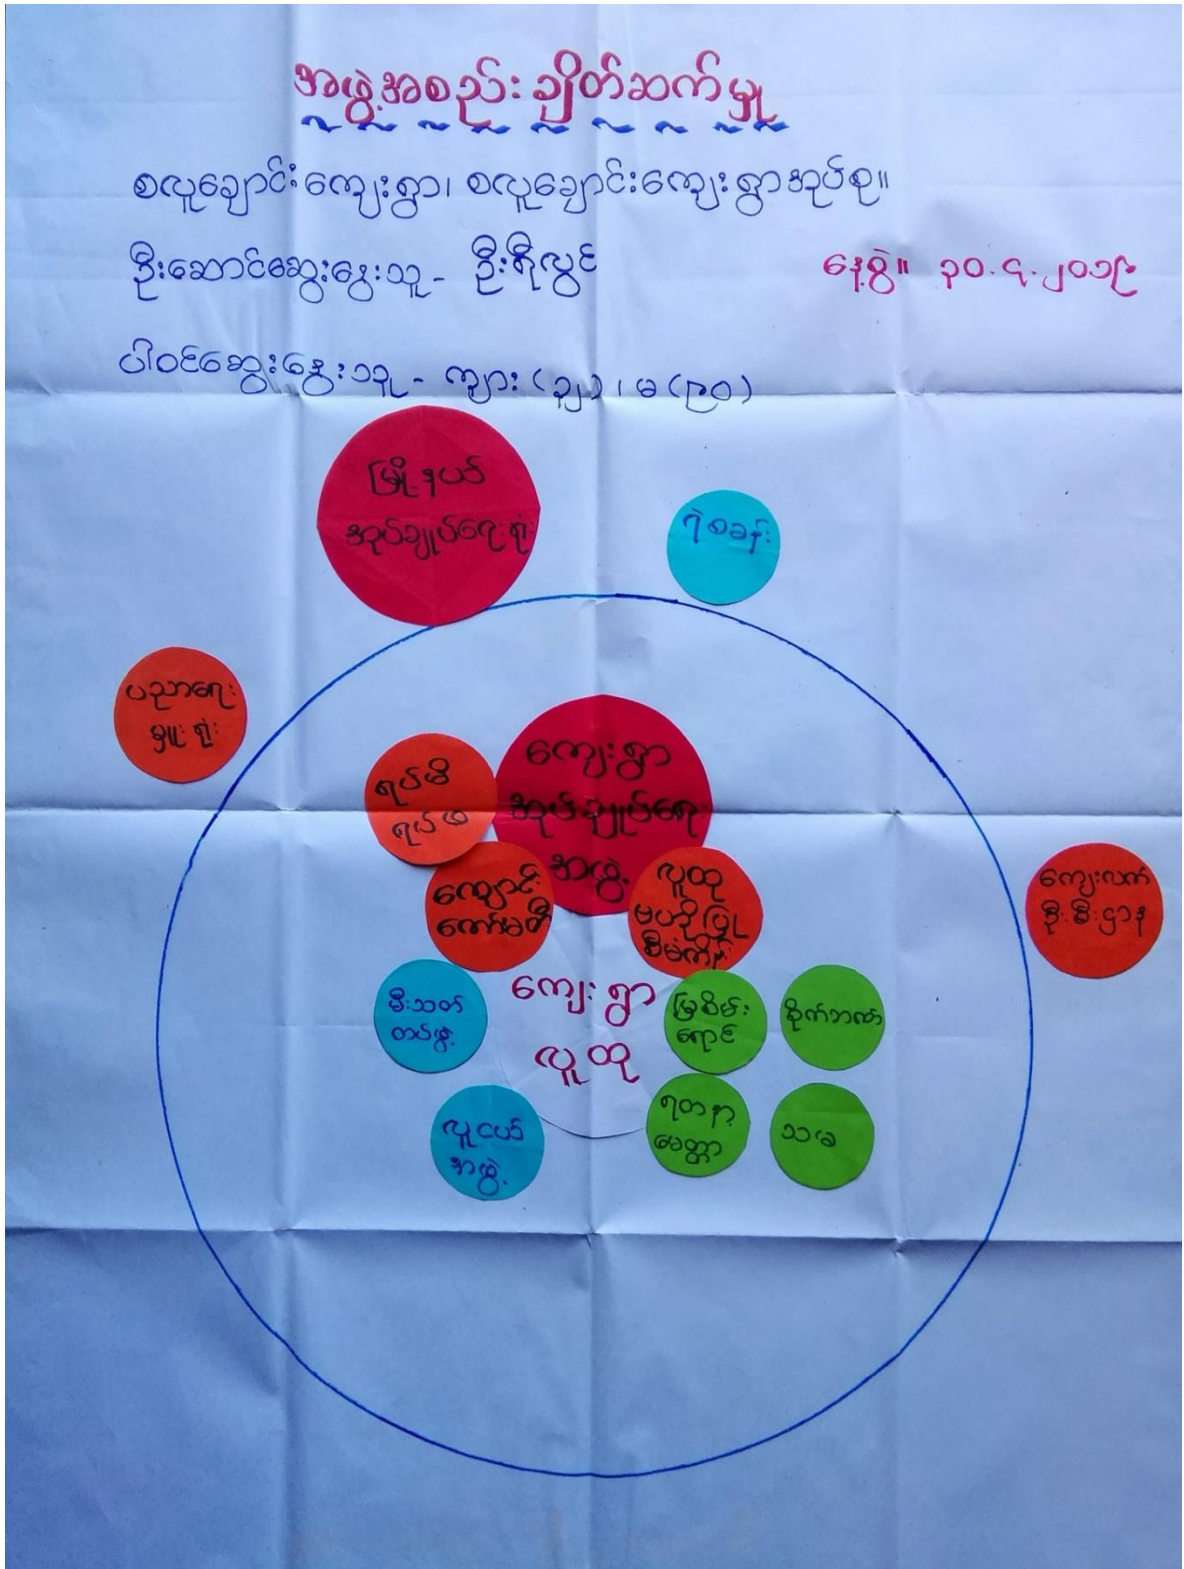 အဖွဲ့အစည်း ချိတ်ဆက်မှု
စလူချောင်းကျေးရွာ၊ စလူချောင်းကျေးရွာအုပ်စု။
ဦးဆောင်ဆွေးနွေးသူ - ဦးရဲလွင်
နေ့စွဲ။ ၃၀.၄.၂၀၁၉
ပါဝင်ဆွေးနွေးသူ - ကျား (၃၂)၊ မ (၉၀)
မြို့နယ်
အုပ်ချုပ်ရေးရုံး
ရဲစခန်း
ပညာရေး
မှူးရုံး
ရပ်မိ
ရပ်ဖ
ကျေးရွာ
အုပ်ချုပ်ရေး
အဖွဲ့
ကျောင်း
ကော်မတီ
လူထု
ဗဟိုပြု
စီမံကိန်း
ကျေးလက်
ဦးစီးဌာန
မီးသတ်
တပ်ဖွဲ့
ကျေးရွာ
လူထု
မြစိမ်း
ရောင်
စိုက်ဘဏ်
လူငယ်
အဖွဲ့
ရတနာ့
မေတ္တာ
သမ